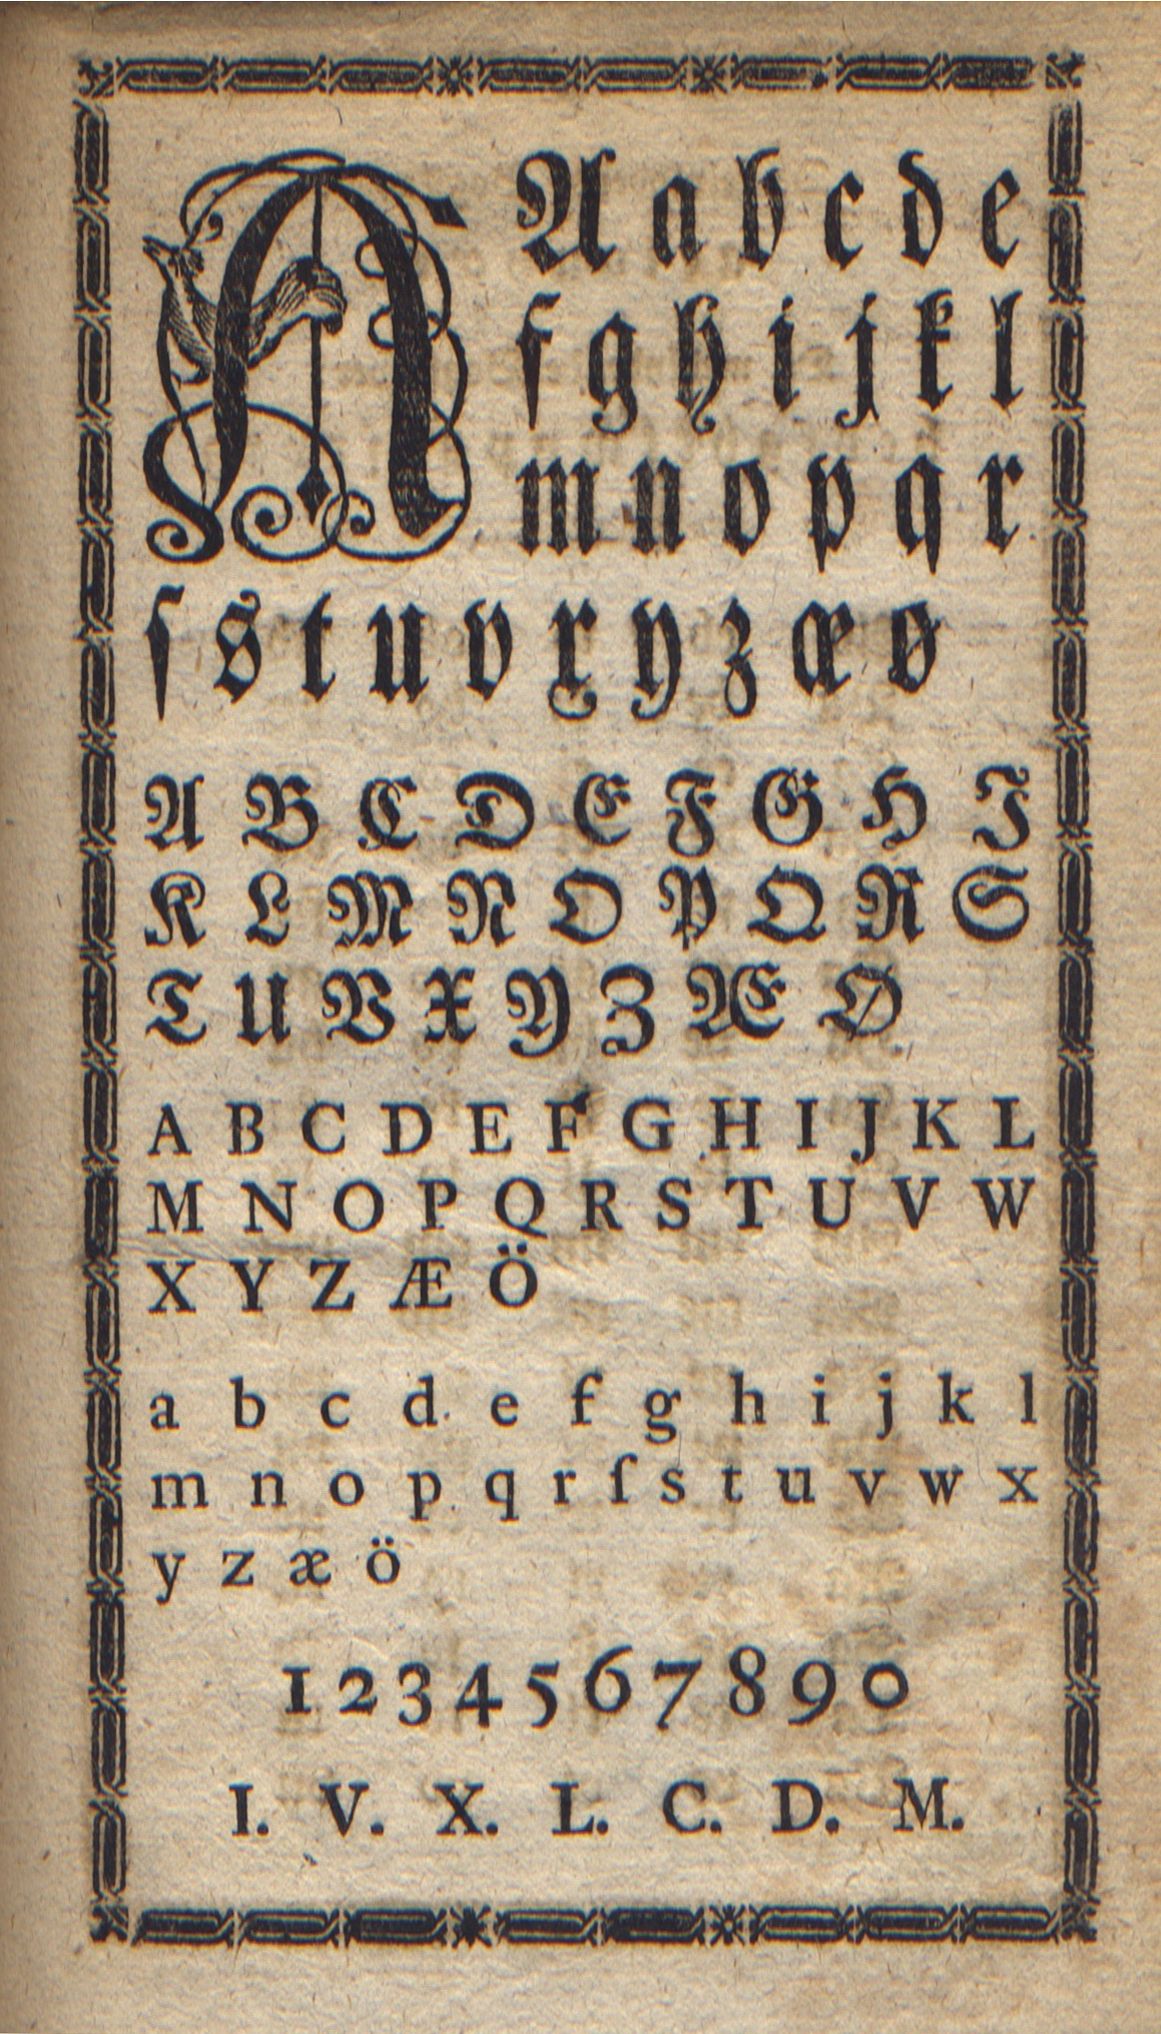 A A a b c d e
f g h i j k l
m n o p q r
ſ s t u v x y z æ ø
A B C D E F G H I
K L M N O P Q R S
T U V X Y Z Æ Ø
A B C D E F G H I J K L
M N O P Q R S T U V W
X Y Z Æ Ö
a b c d e f g h i j k l
m n o p q r ſ s t u v w x
y z æ ö
1 2 3 4 5 6 7 8 9 0
I. V. X. L. C. D. M.